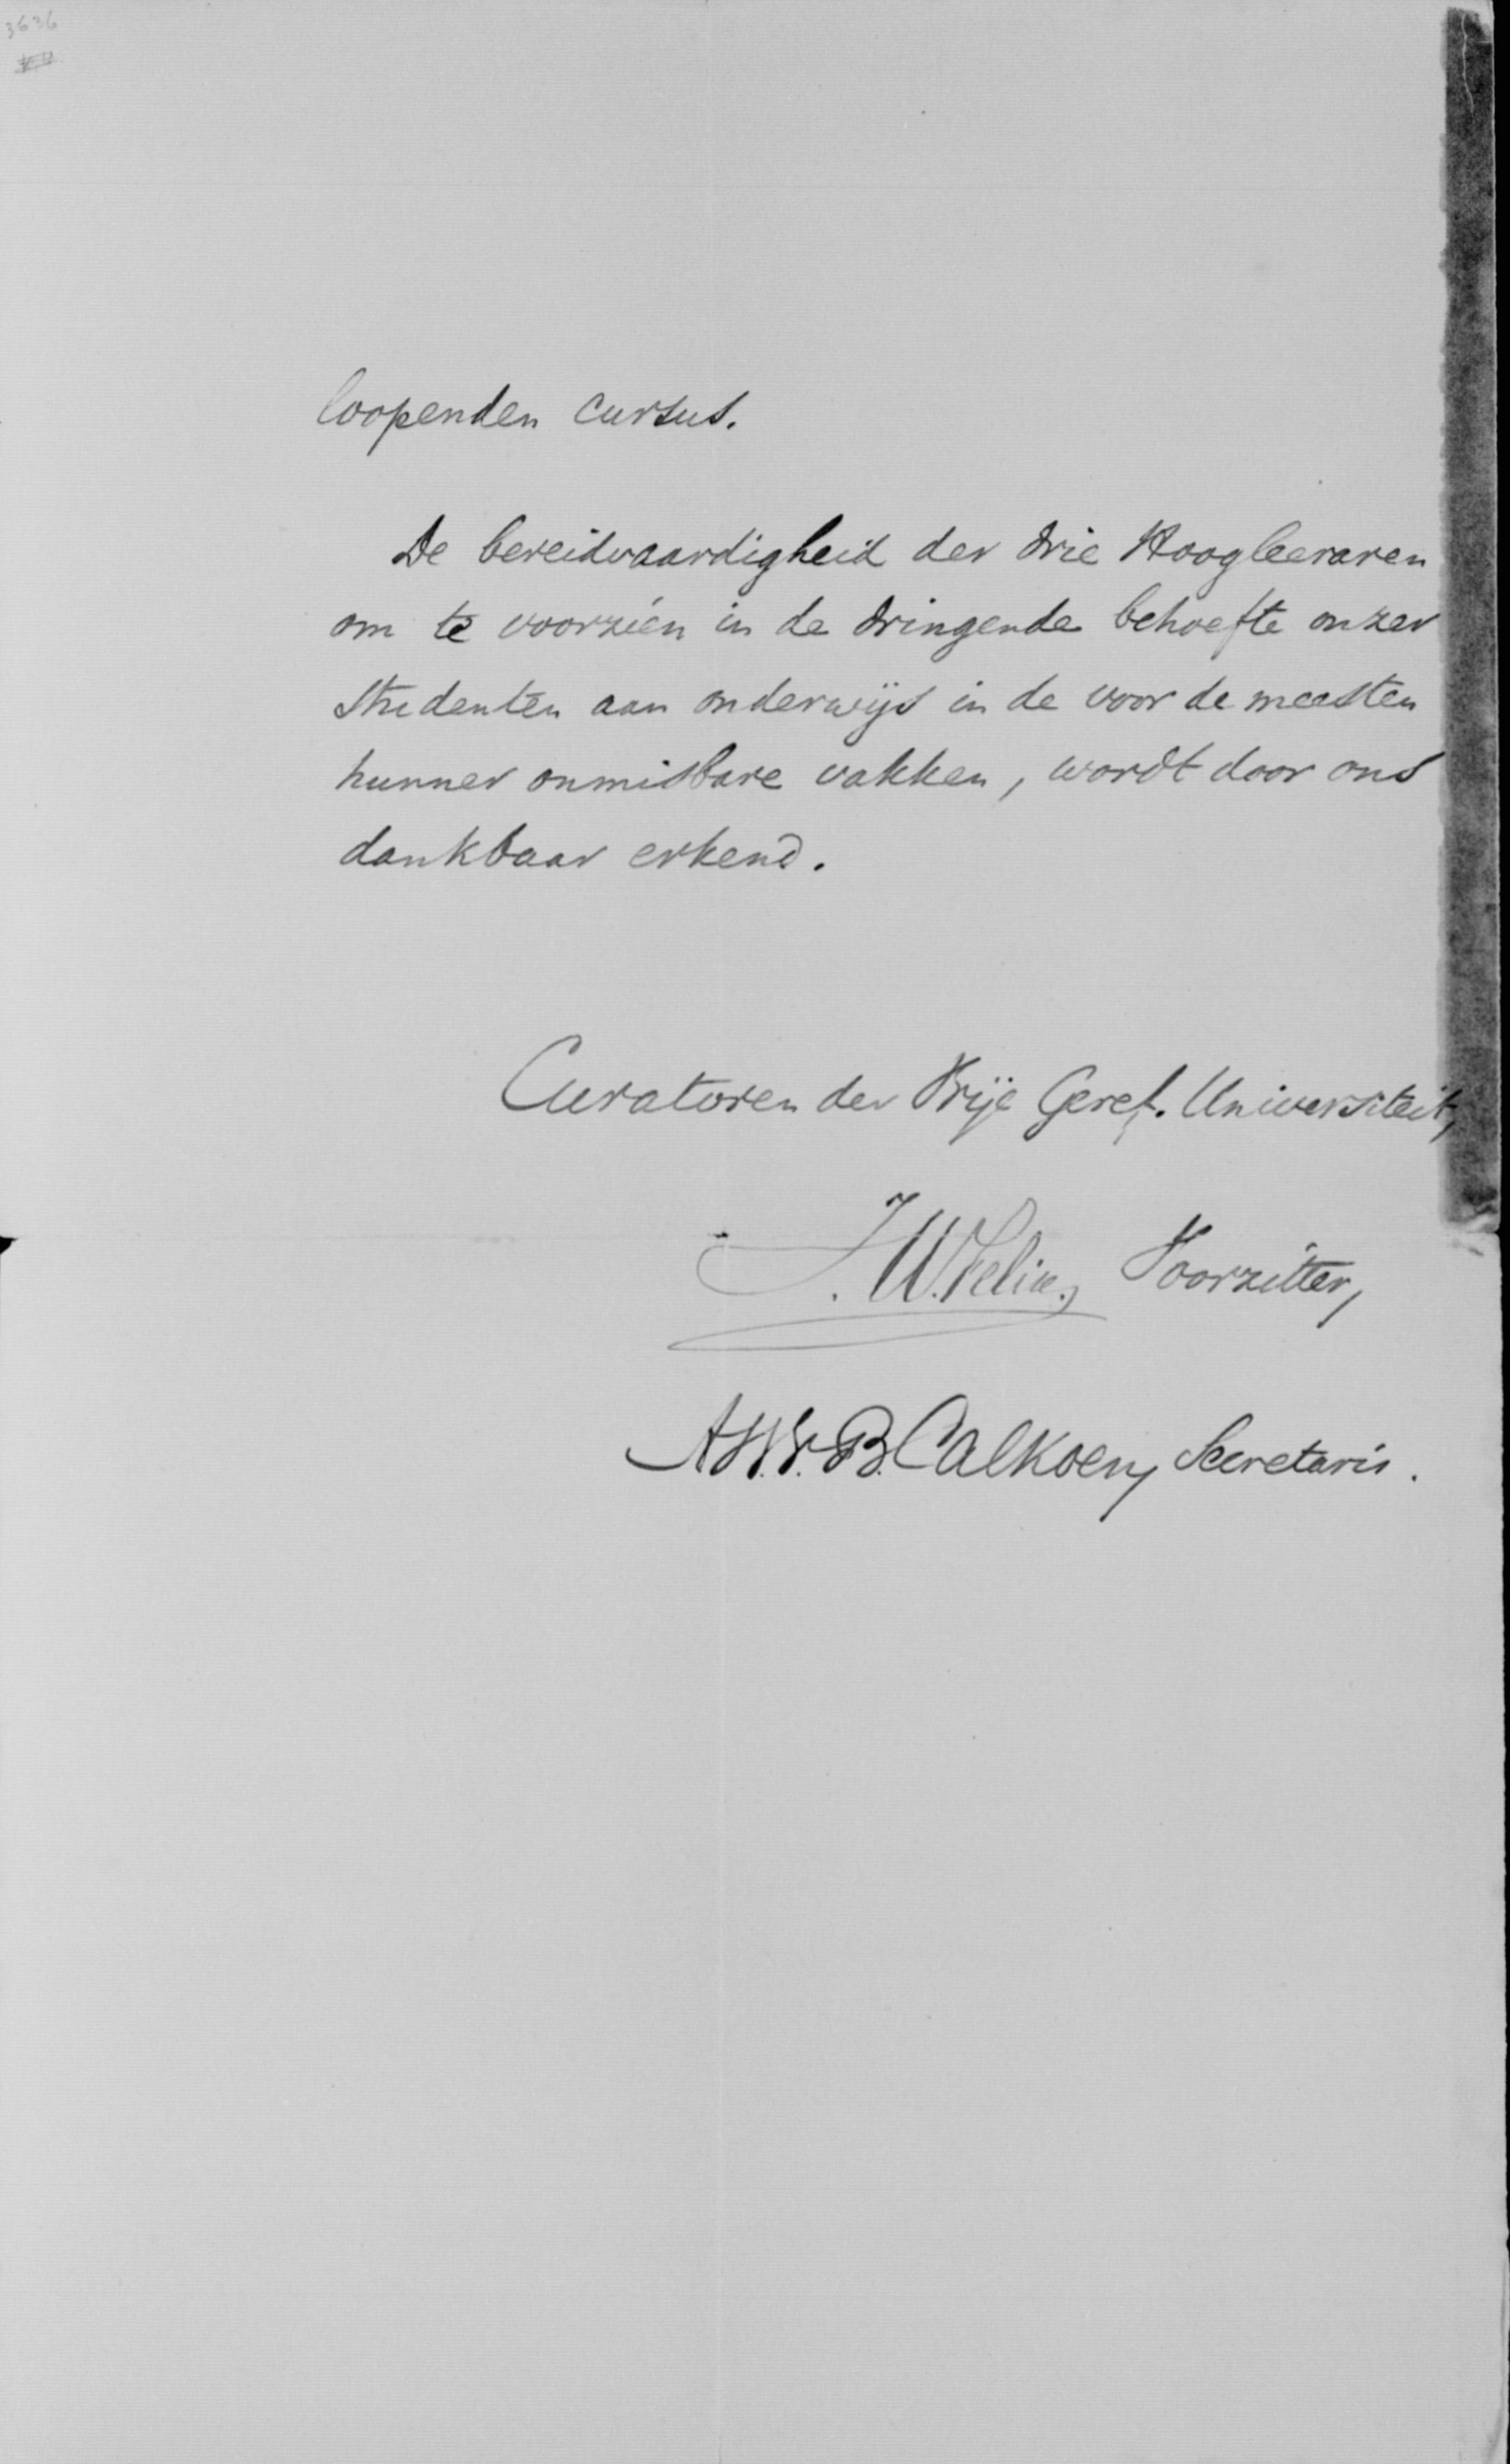 3636
loopenden cursus.
De bereidvaardigheid der drie Hoogleeraren
om te voorzien in de dringende behoefte onzer
Studenten aan onderwijs in de voor de meesten
hunner onmisbare vakken, wordt door ons
dankbaar erkend.
Curatoren der Vrije Geref. Universiteit,
J. W. Felix, Voorzitter,
A W. v. B. Calkoen, Secretaris.